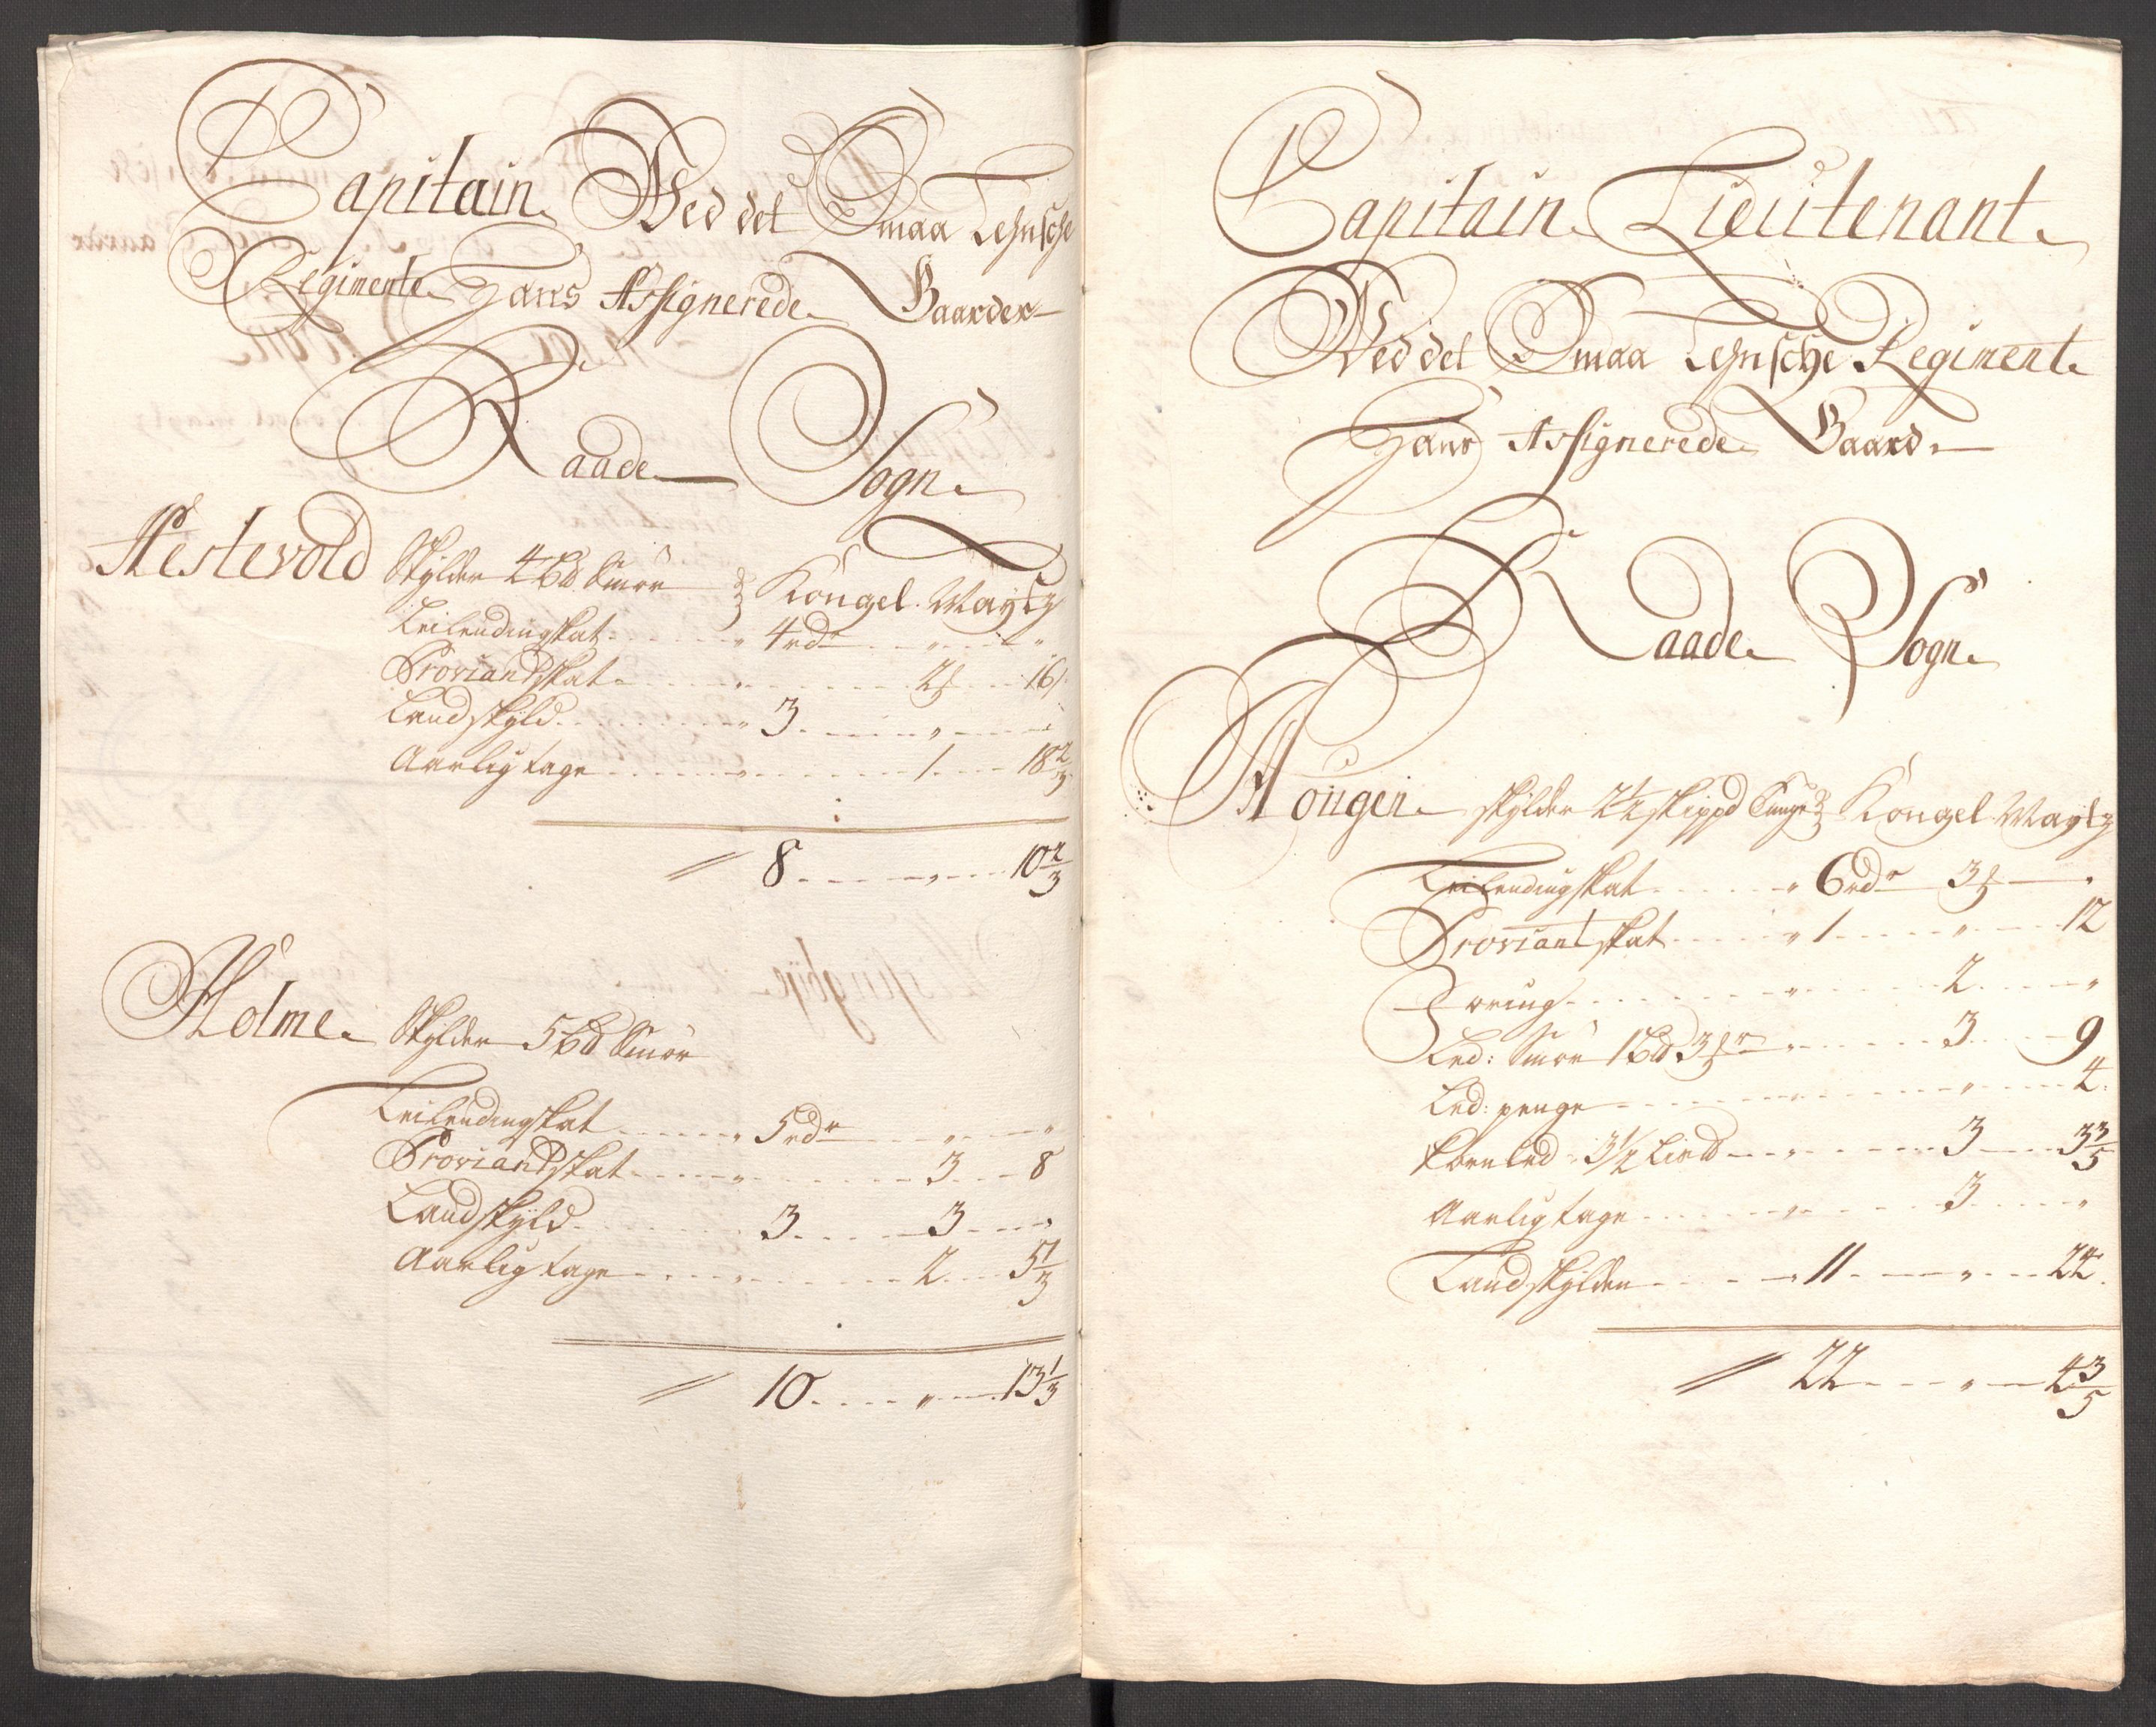 Capitain Ved det Smaa Lehnsche
Regimente Hans Assignerede Gaarder
Raade Sogn
Hestevold Skylder 4 bd Smør Kongel. Maytz
Leilendingskat 4 rdr " "
Proviandskat " 2 16
Landskyld " 3 " "
Aarlig tage " 1 18 2/3
8 " 10 2/3
Holme Skylder 5 bd Smør
Leilendingskat " 5 rdr " "
Proviandskat " 3 8
Landskyld 3 3 "
Aarlig tage " 2 5 1/3
10 " 13 1/3
Capitain Lieutenant
Ved det Smaa Lehnsche Regiment
Hans Assignerede Gaard
Raade Sogn
Hougen skylder 2 1/2 skippd Tunge Kongel. Maytz
Leilendingskat " 6 rdr 3 "
Proviantskat " 1 " 12
Foring " 2 "
Led: Smør 1 bd 3 " 3 9
Led: penge " " 4
Korn led 3 1/2 Lisd " 3 3 3/5
Aarlig tage " 3 "
Landskylden " 11 " 22
22 " 4 3/5